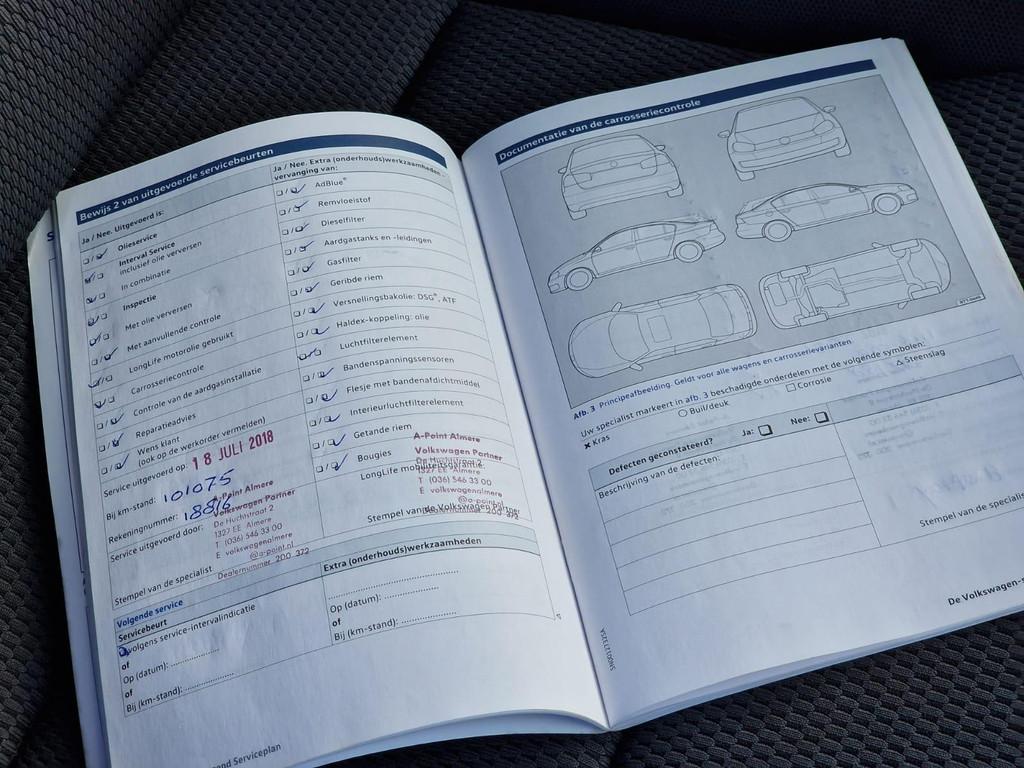 Bewijs 2 van uitgevoerde servicebeurten
Ja / Nee. Uitgevoerd is:
Olieservice
Interval Service
inclusief olie verversen
In combinatie
Inspectie
Met olie verversen
Met aanvullende controle
LongLife motorolie gebruikt
Carrosseriecontrole
Controle van de aardgasinstallatie
Reparatieadvies
Wens klant
(ook op de werkorder vermelden)
Service uitgevoerd op: 18 JULI 2018
Bij km-stand: 101075
Rekeningnummer:
Service uitgevoerd door:
A-Point Almere
Volkswagen Partner
De Huchtstraat 2
1327 EE Almere
T (036) 546 33 00
E volkswagenalmere
@a-point.nl
Dealernummer 200 372
Stempel van de specialist
Ja / Nee. Extra (onderhouds)werkzaamheden -
vervanging van:
AdBlue®
Remvloeistof
Dieselfilter
Aardgastanks en -leidingen
Gasfilter
Geribde riem
Versnellingsbakolie: DSG®, ATF
Haldex-koppeling: olie
Luchtfilterelement
Bandenspanningssensoren
Flesje met bandenafdichtmiddel
Interieurluchtfilterelement
Getande riem
Bougies
LongLife mobiliteitsgarantie:
A-Point Almere
Volkswagen Partner
De Huchtstraat 2
1327 EE Almere
T (036) 546 33 00
E volkswagenalmere
@a-point.nl
Dealernummer 200 372
Stempel van de Volkswagen Partner
Volgende service
Servicebeurt
volgens service-intervalindicatie
of
Op (datum):
of
Bij (km-stand):
Extra (onderhouds)werkzaamheden
Op (datum):
of
Bij (km-stand):
Serviceplan
Documentatie van de carrosseriecontrole
Afb. 3 Principeafbeelding. Geldt voor alle wagens en carrosserievarianten.
Uw specialist markeert in afb. 3 beschadigde onderdelen met de volgende symbolen:
Kras
Buil/deuk
Corrosie
Steenslag
Defecten geconstateerd? Ja: Nee:
Beschrijving van de defecten:
Stempel van de specialis
De Volkswagen-s
5N0012732SA